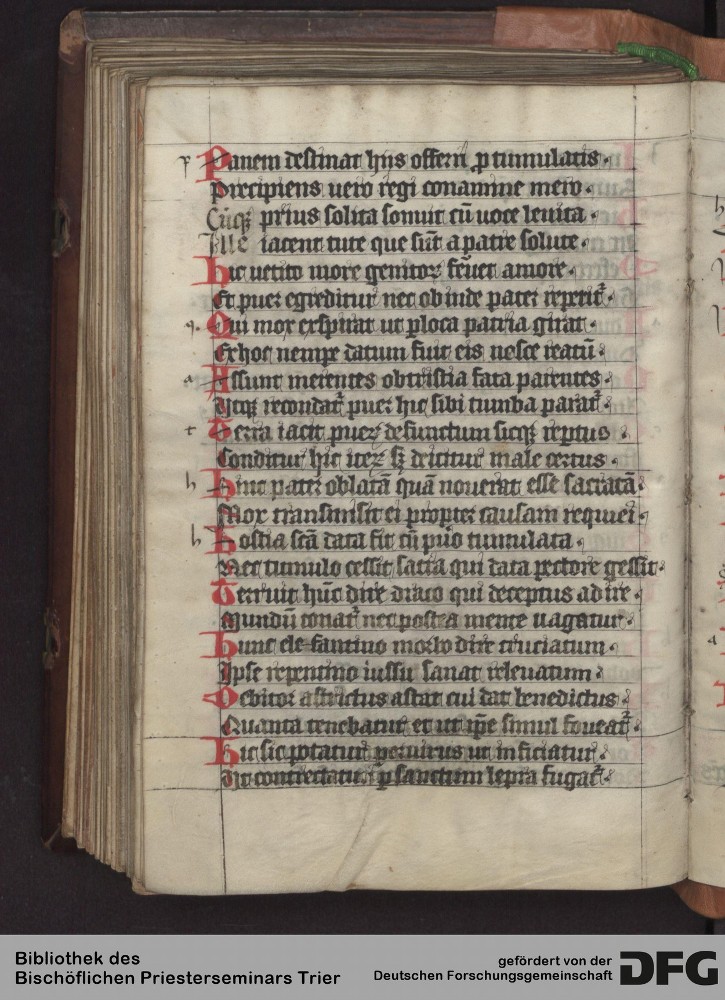 Panem destinat hijs offerri ꝓ tumulatis.
Precipiens uero regi conamine mero.
Cūqꝫ prius solita sonuit cū uoce leuita.
Ille iacent tute que sūt a patre solute.
Hic uetito more genitoꝝ feruet amore.
Et puer egreditur nec obinde pater
Qui mox exspirat ut ploca patria girat.
Ex hoc nempe datum fuit eis nosce reatū.
Assunt merentes obtristia fata parentes.
Utqꝫ recondat᷑ puer hic sibi tumba parat᷑.
Terra iacit puerꝫ defunctum sicqꝫ reptus.
Conditur hic iteꝝ sꝫ deicitur male certus.
Hinc patri oblatā quā nouerat esse sacratā.
Mox transmisit ei propter causam requiei.
Hostia scā data fit cū puo tumulata.
Nec tumulo cessit sacra qui data pectore gessit.
Terruit hūc dire draco qui deceptus ad ire.
Mundū conat᷑ nec postea mente uagatur.
Hunc elefantino morbo dire cruciatum.
Ipse repentino iussu sanat releuatum.
Debitor astrictus astat cui dat benedictus.
Quanta tenebatur et ut ip̄e simul foueat᷑.
Hic sic potatur ut inficiatur.
Ut contrectatur ꝑ sanctum lepra fugat᷑.
Bibliothek des
Bischöflichen Priesterseminars Trier
gefördert von der
Deutschen Forschungsgemeinschaft
DFG